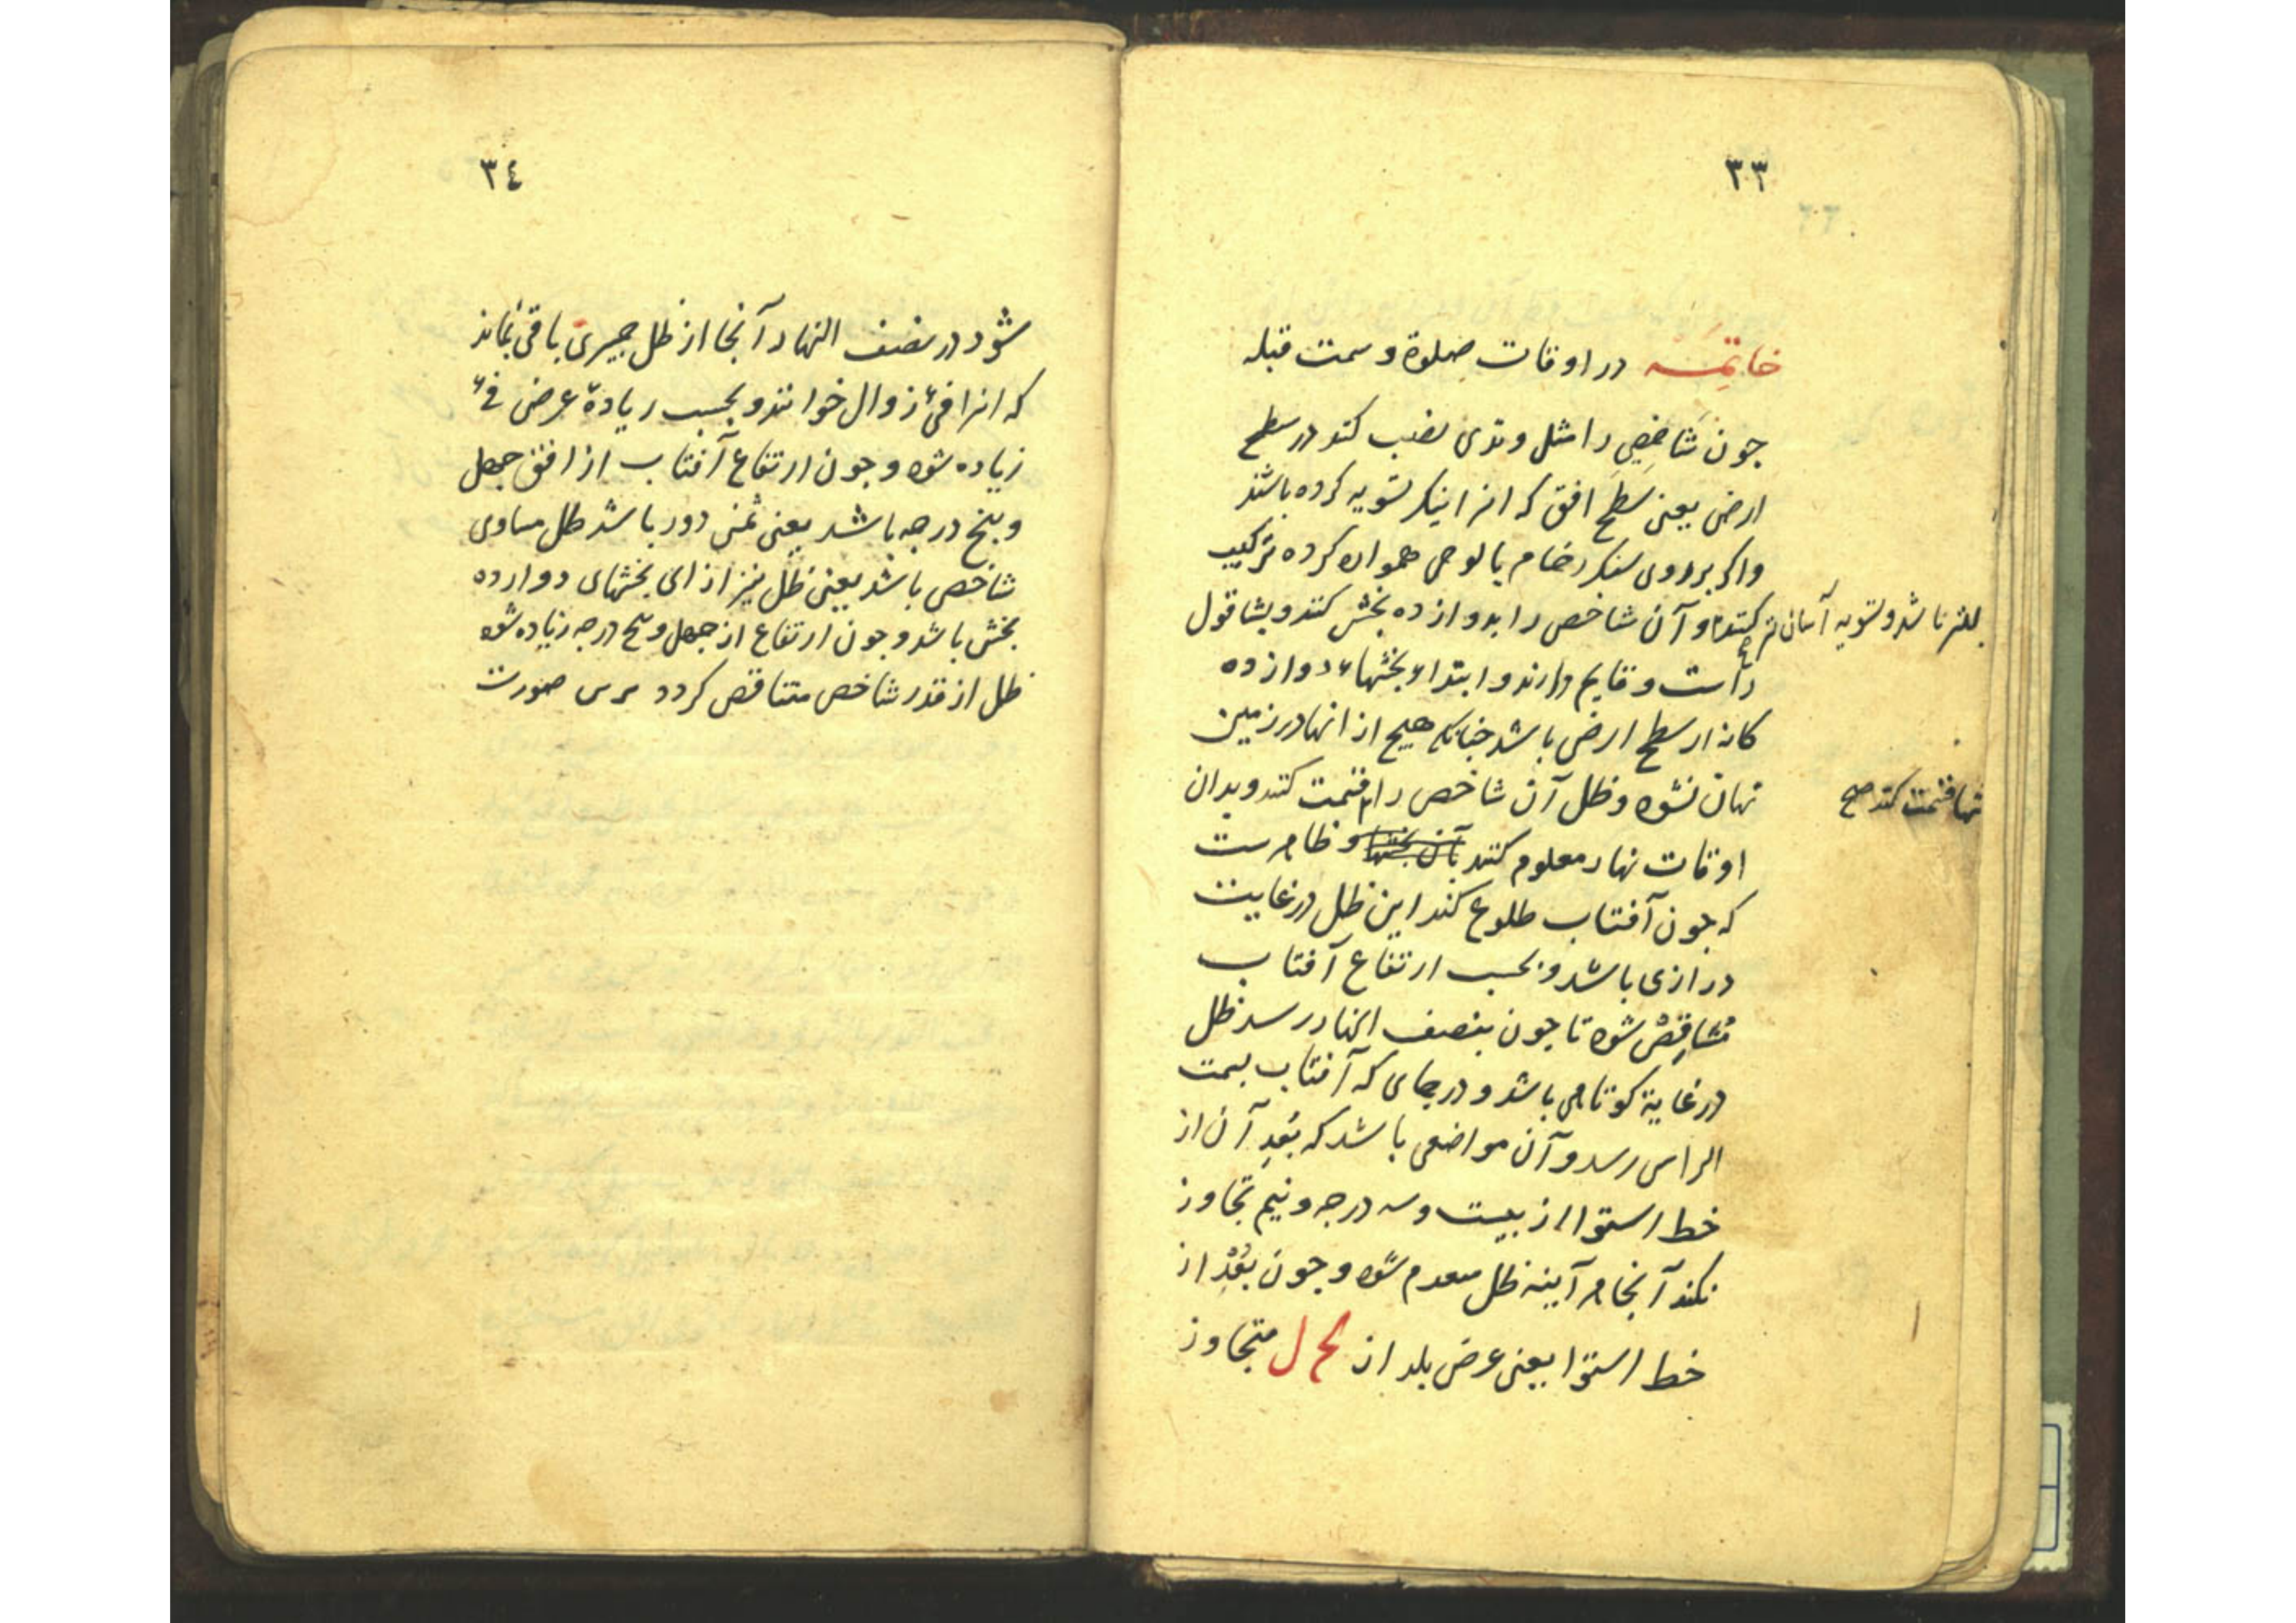 ٣٣
خاتمه در اوقات صلوة و سمت قبله
جون شاخصی را مثل وتدی نصب کنند در سطح
ارض یعنی سطح افق که انرا نیکر تسویه کرده باشند
واکر بر روی سنک رخام یا لوحی هموار کرده ترکیب
کنند و آن شاخص را بدوازده بخش کنند و بشاقول
تر باشد و تسویه آسان تر
راست و قایم دارند و ابتداء بخشهاء دوازده
کانه از سطح ارض باشد جنانکه هیچ از انها در زمین
نهان نشود و ظل آن شاخص را قسمت کنند و بدان
قسمت کند صح
اوقات نهار معلوم کنند بآن بخشها و ظاهرست
که جون آفتاب طلوع کند این ظل در غایت
درازی باشد و بحسب ارتفاع آفتاب
متناقص شود تا جون بنصف النهار رسد ظل
در غایة کوتاهی باشد و در جای که آفتاب بسمت
الراس رسد و آن مواضعی باشد که بعد آن از
خط استوا از بیست و سه درجه و نیم تجاوز
نکند آنجا هر آینه ظل معدم شود و جون بعد از
خط استوا یعنی عرض بلد از کح ل متجاوز
٣٤
شود در نصف النهار آنجا از ظل جیزی باقی بماند
که انرا فیء زوال خوانند و بحسب زیادة عرض فیء
زیاده شود و جون ارتفاع آفتاب از افق جهل
و بنج درجه باشد یعنی ثمن دور باشد ظل مساوی
شاخص باشد یعنی ظل نیز از ای بخشهای دوازده
بخش باشد و جون ارتفاع از جهل و بنج درجه زیاده شود
ظل از قدر شاخص متناقص کردد برین صورت